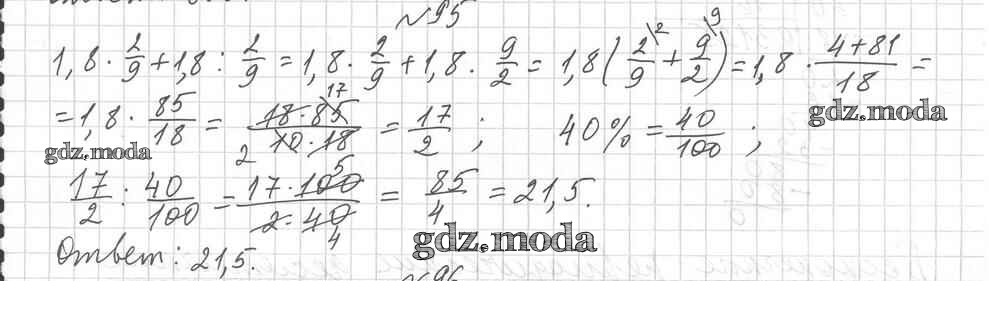 №95
1,8 · 2/9 + 1,8 : 2/9 = 1,8 · 2/9 + 1,8 · 9/2 = 1,8 (2/9\2 + 9/2\9) = 1,8 · (4+81)/18 =
gdz.moda
= 1,8 · 85/18 = (18·85 17)/(2 10·18) = 17/2 ; 40% = 40/100 ;
gdz.moda
17/2 : 40/100 = (17·100 5)/(2·40 4) = 85/4 = 21,5.
gdz.moda
Ответ: 21,5.
№96